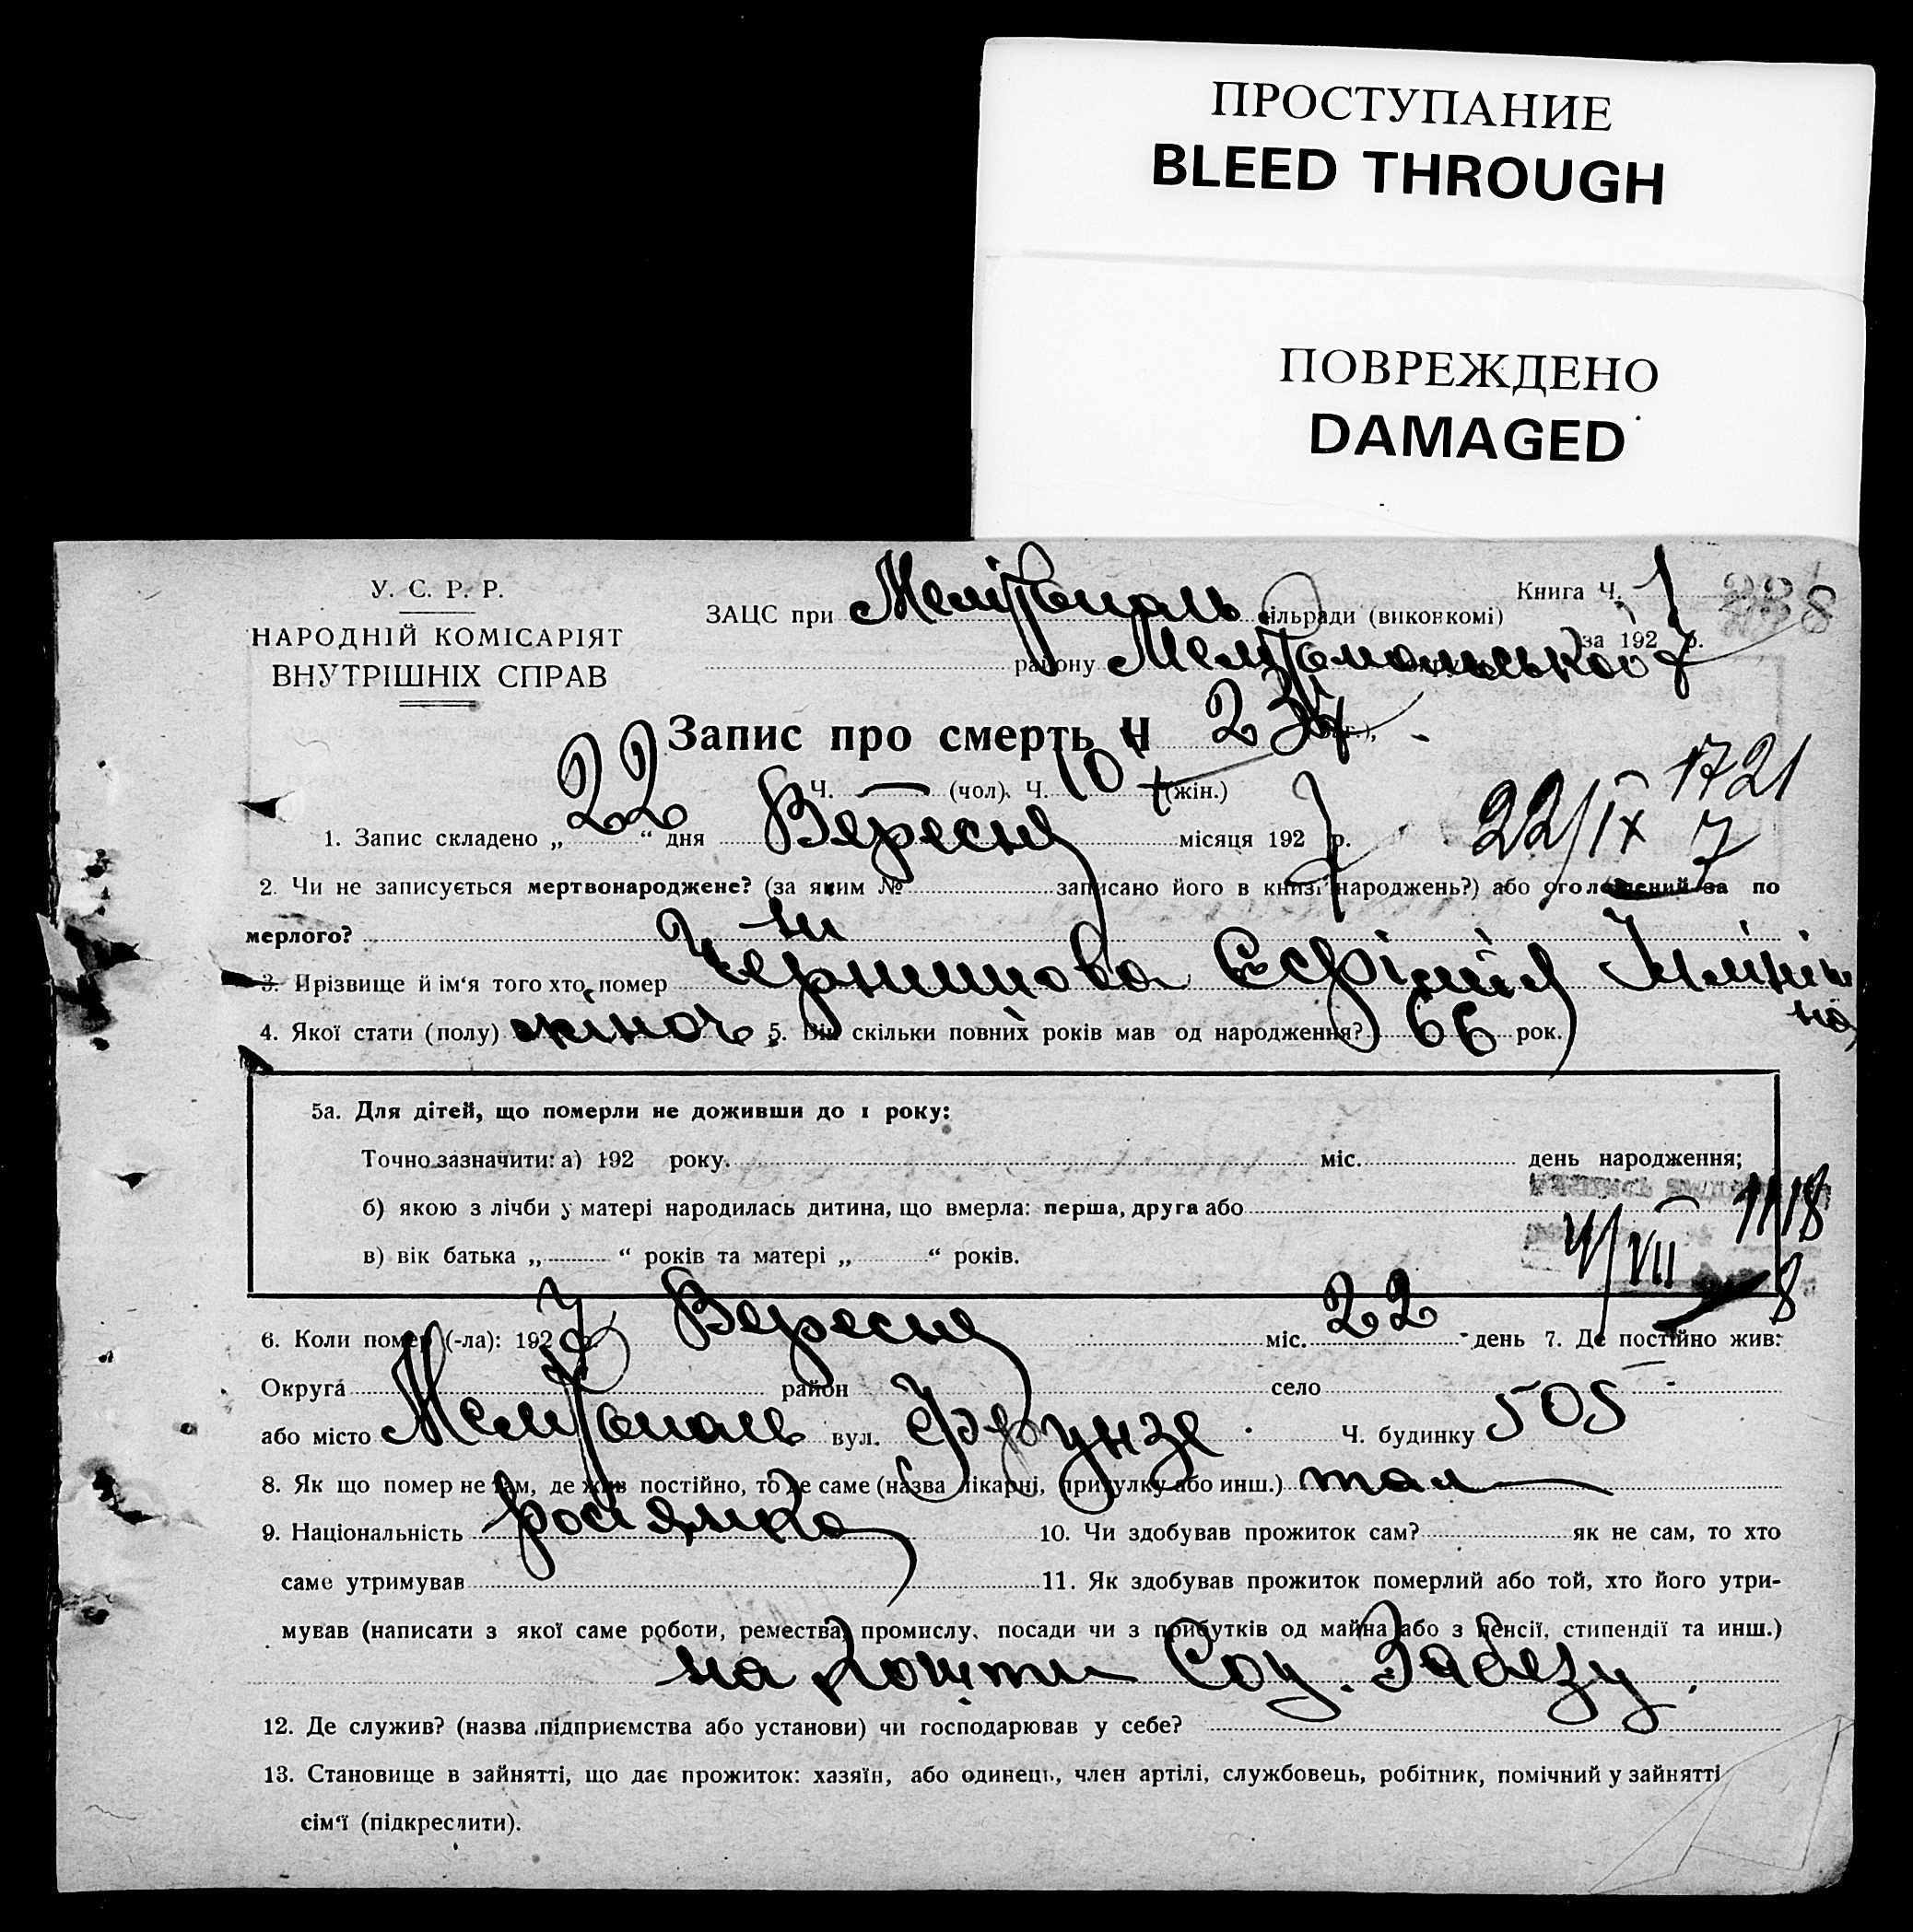 ПРОСТУПАНИЕ
BLEED THROUGH
ПОВРЕЖДЕНО
DAMAGED
У. С. Р. Р.
НАРОДНІЙ КОМІСАРІЯТ
ВНУТРІШНІХ СПРАВ
ЗАЦС при Мелітополь сільради (виконкомі)
Книга Ч. 7
за 1927 р.
району Мелітопольської
Запис про смерть Ч 234
Ч. — (чол). Ч. 107 (жін.)
1721
22/IX 7
1. Запис складено „22“ дня Вересня місяця 1927 р.
2. Чи не записується мертвонароджене? (за яким № записано його в книзі народжень?) або оголошений за по
мерлого? ні
3. Прізвище й ім‘я того хто помер Чернишова Єфімія
4. Якої стати (полу) жіноч 5. Він скільки повних років мав од народження? 66 рок.
5а. Для дітей, що померли не доживши до 1 року:
Точно зазначити: а) 192 року. міс. день народження;
б) якою з лічби у матері народилась дитина, що вмерла: перша, друга або
в) вік батька „ “ років та матері „ “ років.
1118
4/VII 8
6. Коли помер (-ла): 1927 р. Вересня міс. 22 день 7. Де постійно жив:
Округа район село
або місто Мелітополь вул. Фрунзе Ч. будинку 505
8. Як що помер не там, де жив постійно, то де саме (назва лікарні, притулку або инш.) там
9. Національність росіянка 10. Чи здобував прожиток сам? як не сам, то хто
саме утримував 11. Як здобував прожиток померлий або той, хто його утри-
мував (написати з якої саме роботи, ремества, промислу, посади чи з прибутків од майна або з пенсії, стипендії та инш.)
на кошти Соц. Забезу.
12. Де служив? (назва підприємства або установи) чи господарював у себе?
13. Становище в зайнятті, що дає прожиток: хазяїн, або одинець, член артілі, службовець, робітник, помічний у зайнятті
сім‘ї (підкреслити).